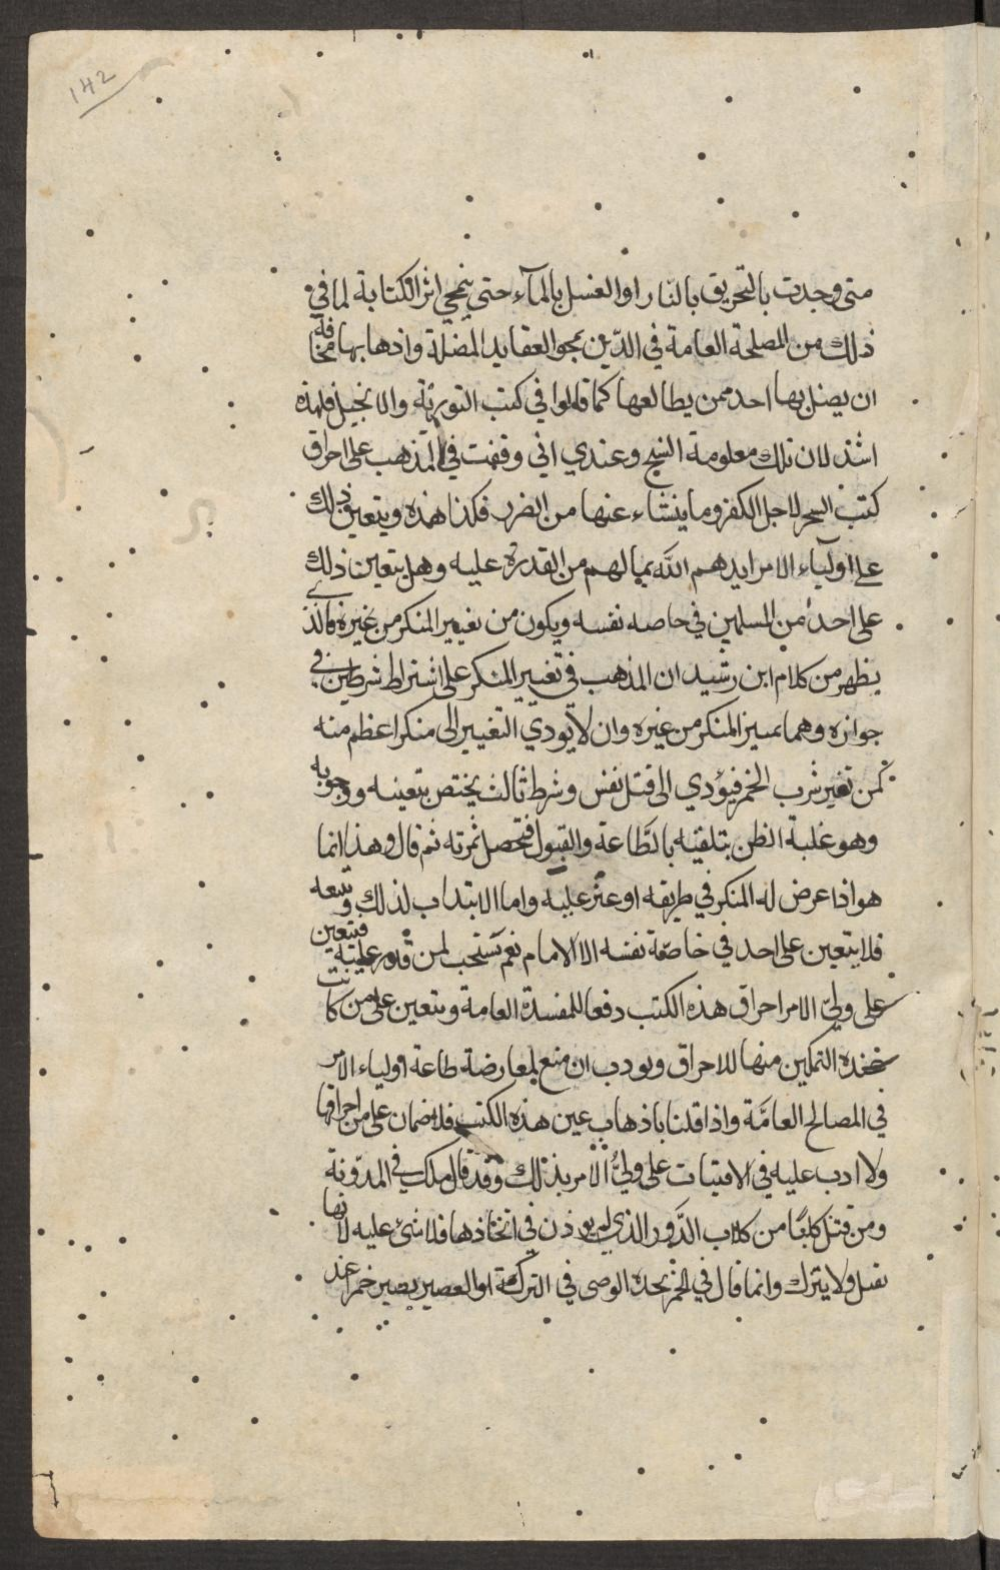 142
متى وجدت بالتحريق بالنار او الغسل بالمآء حتى ينمحي اثر الكتابة لما في
ذلك من المصلحة العامة في الدّين بمحو العقايد المضلة واذهابها مخافة
ان يضل بها احد ممن يطالعها كما قالوا في كتب التورية والانجيل فهذه
اشد لان تلك معلومة النسخ وعندي اني وقفت في المذهب على احراق
كتب السحر لاجل الكفر وما ينشاء عنها من الضرر فكذا هذه ويتعين ذلك
على اولياء الامر ايدهم الله بما لهم من القدرة عليه وهل يتعين ذلك
على احد من المسلمين في خاصه نفسه ويكون من تغيير المنكر من غيره فالذي
يظهر من كلام ابن رشيد ان المذهب في تغيير المنكر على اشتراط شرطين في
جوازه وهما تمييز المنكر من غيره وان لا يودي التغيير الى منكر اعظم منه
كمن تغير شرب الخمر فيؤدي الى قتل نفس وشرط ثالث يختص بتعينه ووجوبه
وهو غلبة الظن بتلقيه بالطّاعة والقبول فتحصل ثمرته ثم قال وهذا انما
هو اذا عرض له المنكر في طريقه او عثر عليه واما الانتداب لذلك وتتبعه
فلا يتعين على احد في خاصّة نفسه الا الامام نعم تستحب لمن قدر عليه فيتعين
على وليّ الامر احراق هذه الكتب دفعا للمفسدة العامة ويتعين على من كانت
عنده التمكين منها للاحراق ويودب ان منع لمعارضة طاعة اولياء الامر
في المصالح العامّة واذا قلنا باذهاب عين هذه الكتب فلا ضمان على من احراقها
ولا ادب عليه في الافتيات على وليّ الامر بذلك وقد قال ملك في المدوّنة
ومن قتل كلبًا من كلاب الدّور الذي لم يوذن في اتخاذها فلا شئ عليه لانها
تقتل ولا يترك وانما قال في الخمر بحده الوصى في التركة او العصير يصير خمر عند